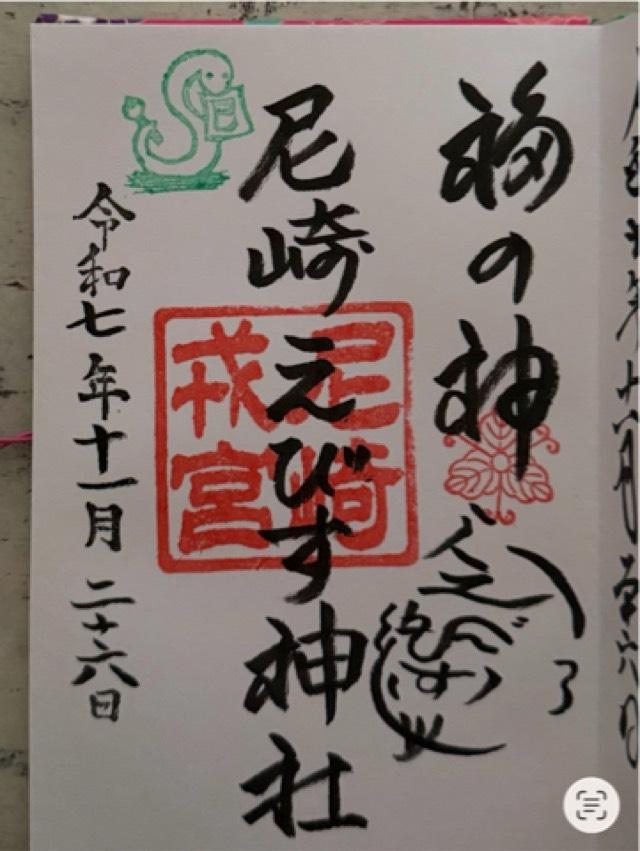 福の神
尼崎えびす神社
尼崎
戎宮
巳
令和七年十一月二十六日